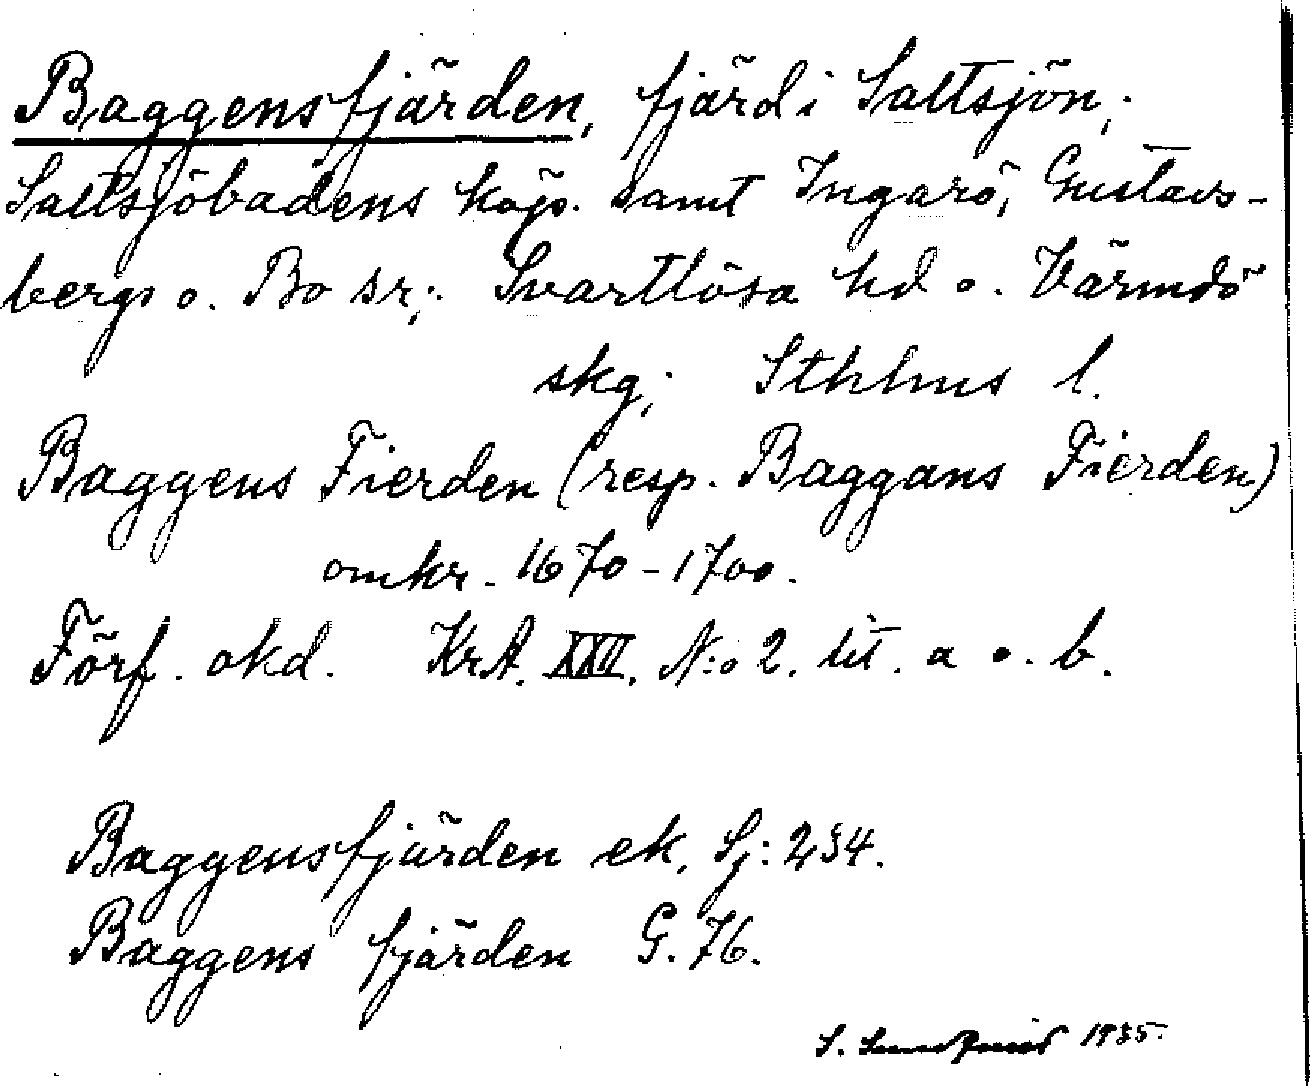 Baggensfjärden, fjärd i Saltsjön;
Saltsjöbadens köp. samt Ingarö, Gustavs-
bergs o. Bo sr; Svartlösa hd o. Värmdö
skg; Sthlms l.
Baggens Fierden (resp. Baggans Fierden)
omkr. 1670-1700.
Förf. okd. KrA. XXII. N:o 2. lit. a o. b.
Baggensfjärden ek. Sj: 234.
Baggens fjärden G. 76.
S. 1935.